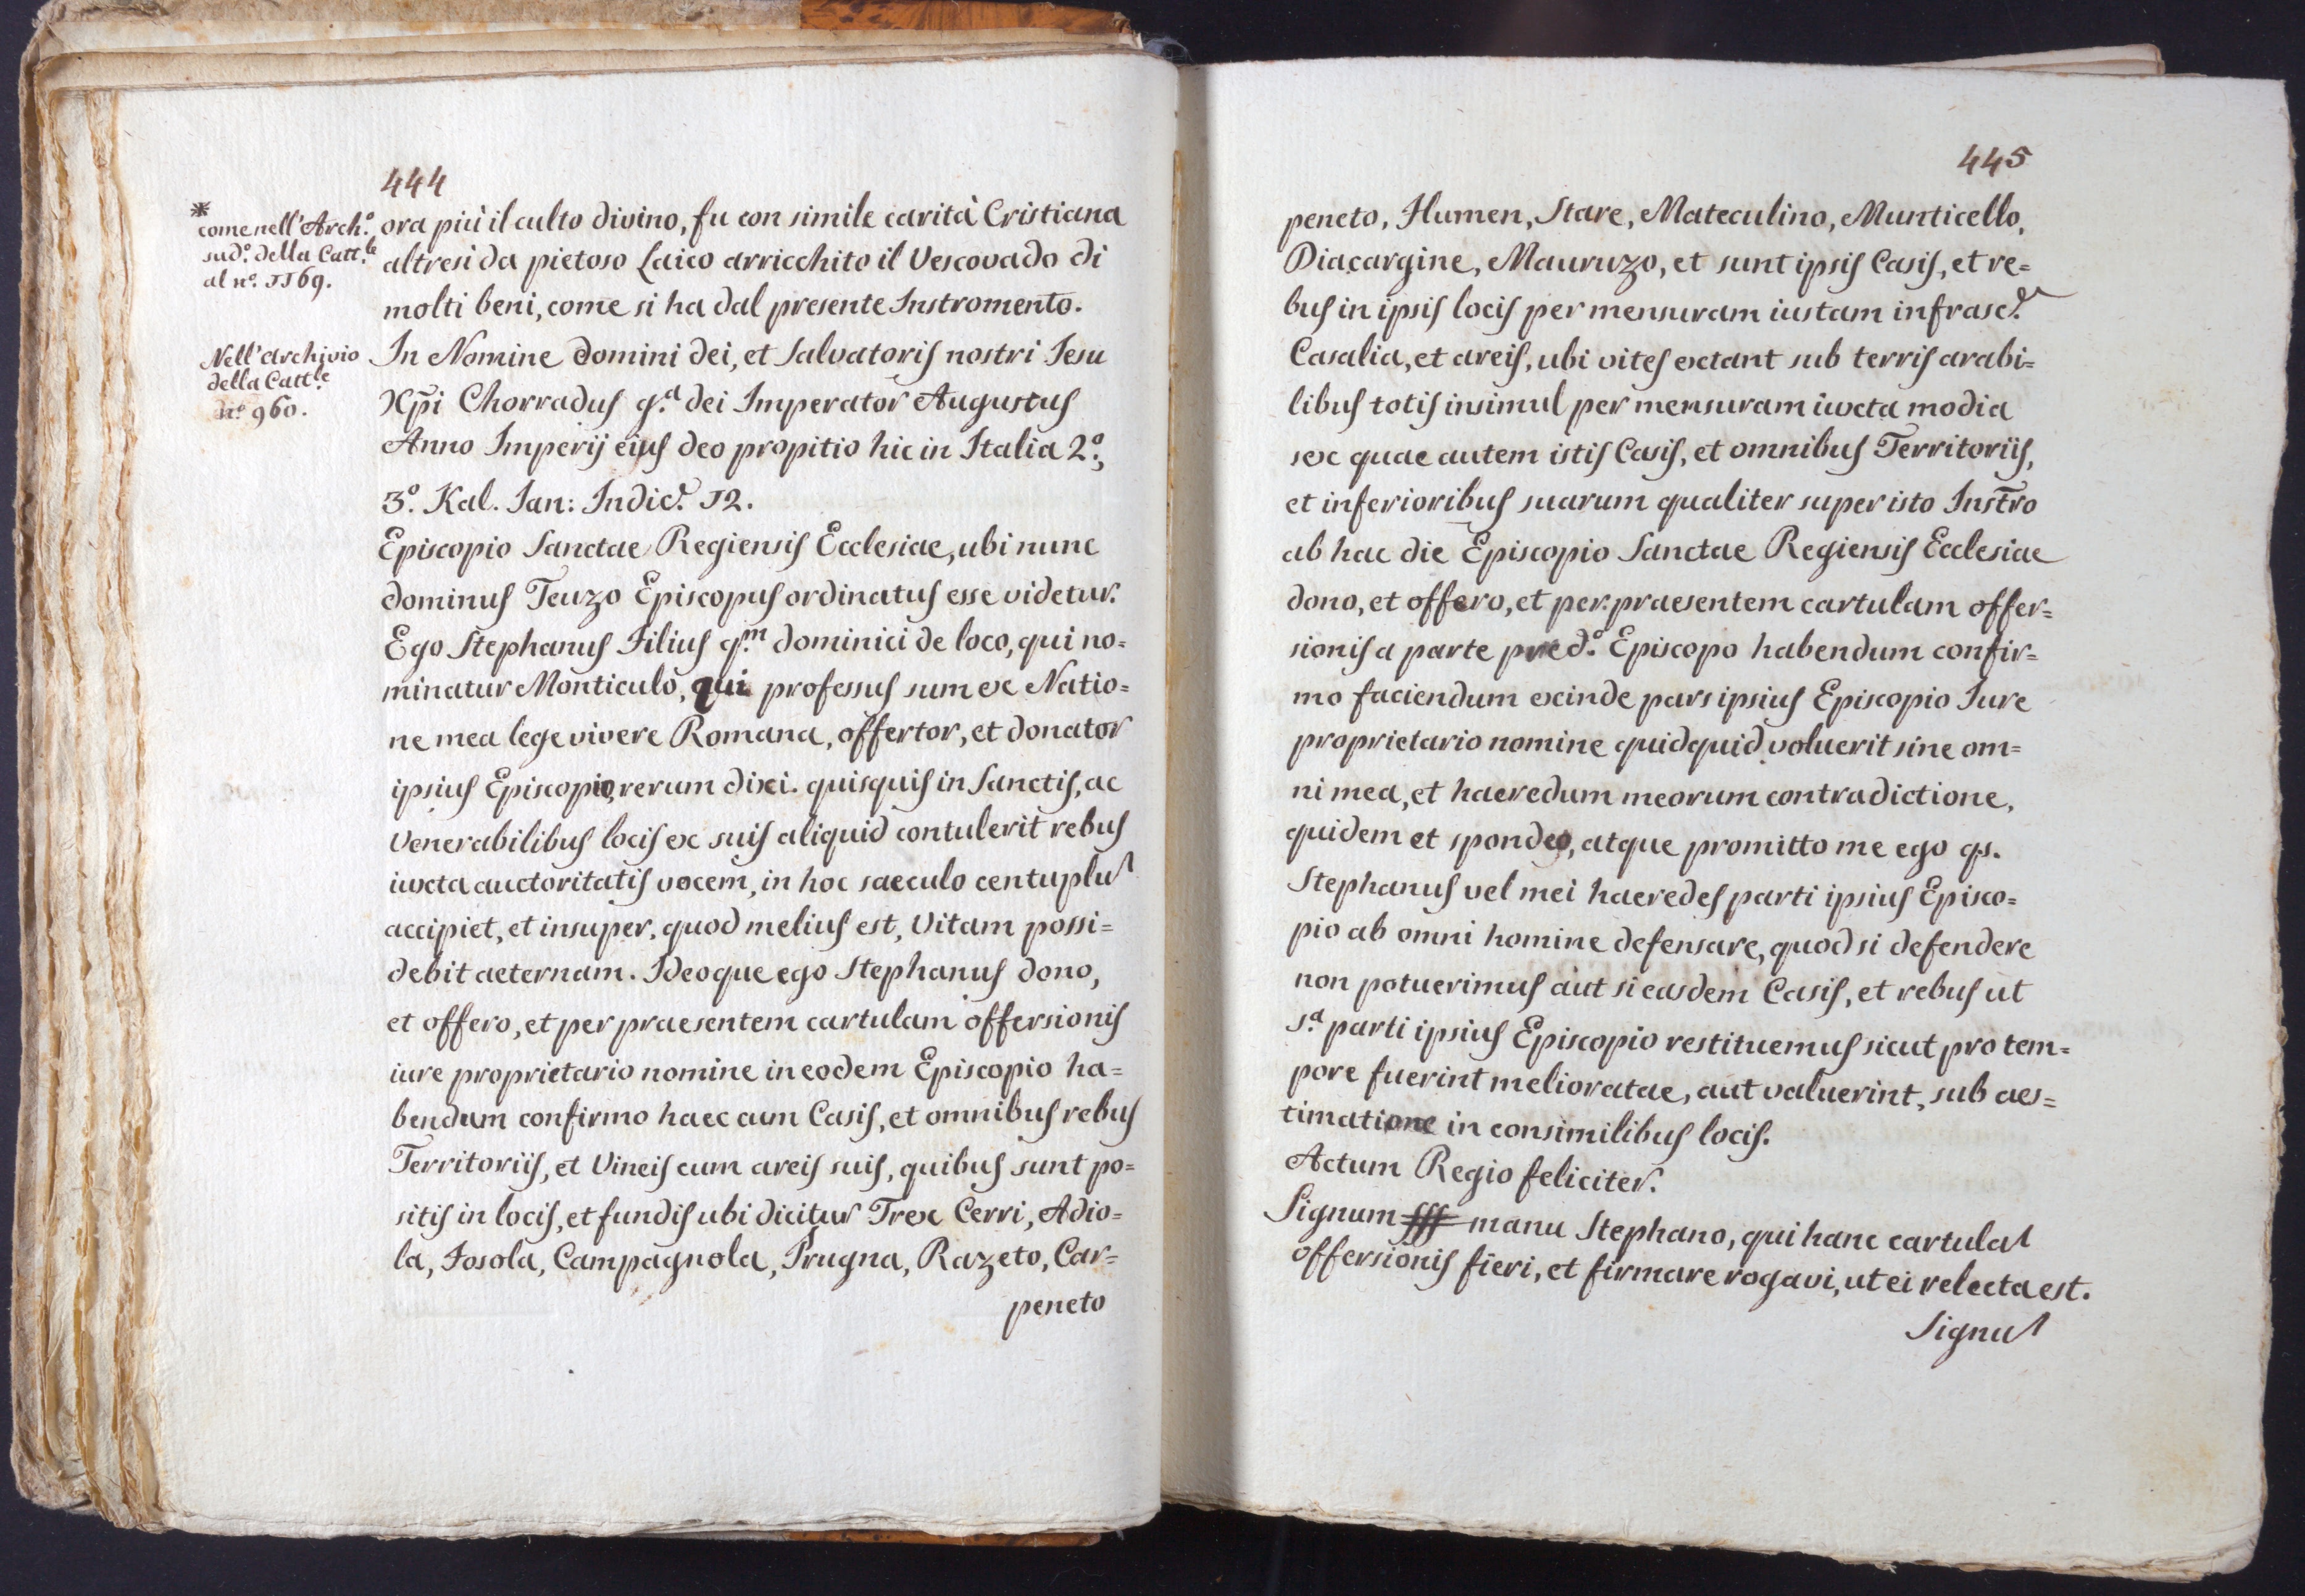 444
*
come nell'Arch.º
sud.º della Catt.le
al nº. 1169.
ora più il culto divino, fu con simile carità Cristiana
altresì da pietoso Laico arricchito il Vescovado di
molti beni, come si ha dal presente Instromento.
Nell'archivio
della Catt.le
nº 960.
In Nomine Domini dei, et Salvatoris nostri Iesu
Xp̄i Chorradus g.a dei Imperator Augustus
Anno Imperij ejus deo propitio hic in Italia 2.º,
3.º Kal. Ian: Indic.e 12.
Episcopio Sanctae Regiensis Ecclesiae, ubi nunc
dominus Teuzo Episcopus ordinatus esse videtur.
Ego Stephanus Filius q.m dominici de loco, qui no=
minatur Monticulo, qui professus sum ex Natio=
ne mea lege vivere Romana, offertor, et donator
ipsius Episcopio, rerum dixi. quisquis in Sanctis, ac
Venerabilibus locis ex suis aliquid contulerit rebus
iuxta auctoritatis vocem, in hoc saeculo centuplu
accipiet, et insuper, quod melius est, Vitam possi=
debit aeternam. Ideoque ego Stephanus dono,
et offero, et per praesentem cartulam offersionis
iure proprietario nomine in eodem Episcopio ha=
bendum confirmo haec cum Casis, et omnibus rebus
Territoriis, et Vineis cum areis suis, quibus sunt po=
sitis in locis, et fundis ubi dicitur Trex Cerri, Adio=
la, Fosola, Campagnola, Prugna, Razeto, Car=
peneto
445
peneto, Flumen, Stare, Mateculino, Munticello,
Diacargine, Mauruzo, et sunt ipsis Casis, et re=
bus in ipsis locis per mensuram iustam infrasc.a
Casalia, et areis, ubi vites extant sub terris arabi=
libus totis insimul per mensuram iuxta modia
sex quae autem istis Casis, et omnibus Territoriis,
et inferioribus suarum qualiter super isto Inst̄ro
ab hac die Episcopio Sanctae Regiensis Ecclesiae
dono, et offero, et per praesentem cartulam offer=
sionis a parte pred.º Episcopo habendum confir=
mo faciendum exinde pars ipsius Episcopio Iure
proprietario nomine quidquid voluerit sine om=
ni mea, et haeredum meorum contradictione,
quidem et spondeo, atque promitto me ego qs.
Stephanus vel mei haeredes parti ipsius Episco=
pio ab omni homine defensare, quod si defendere
non potuerimus aut si easdem Casis, et rebus ut
s.a parti ipsius Episcopio restituemus sicut pro tem=
pore fuerint melioratae, aut valuerint, sub aes=
timatione in consimilibus locis.
Actum Regio feliciter.
Signum fff manu Stephano, qui hanc cartula
offersionis fieri, et firmare rogavi, ut ei relecta est.
Signu